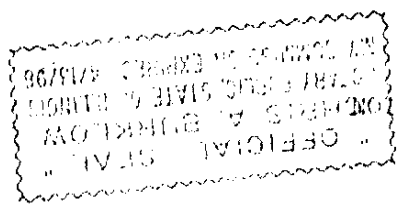 " OFFICIAL SEAL "
A. BURKLOW
NOTARY PUBLIC, STATE OF ILLINOIS
MY COMMISSION EXPIRES 4/13/96